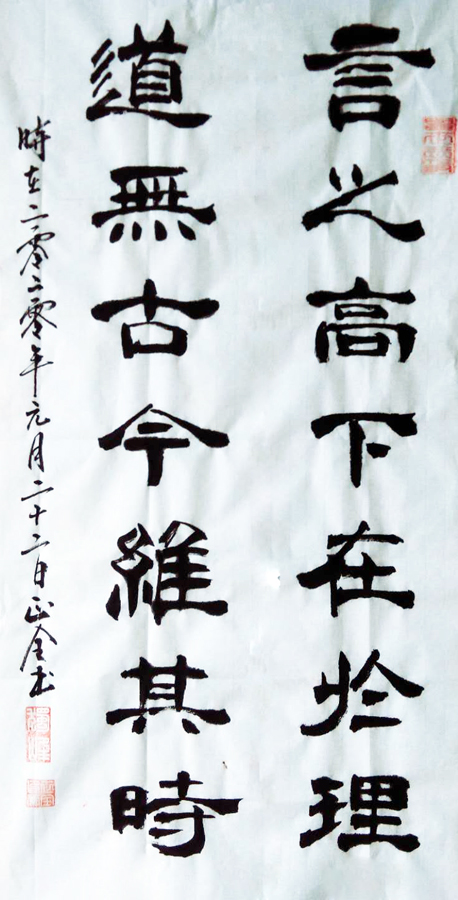 言之高下在於理
道無古今維其時
時在二零二零年元月二十二日正全書